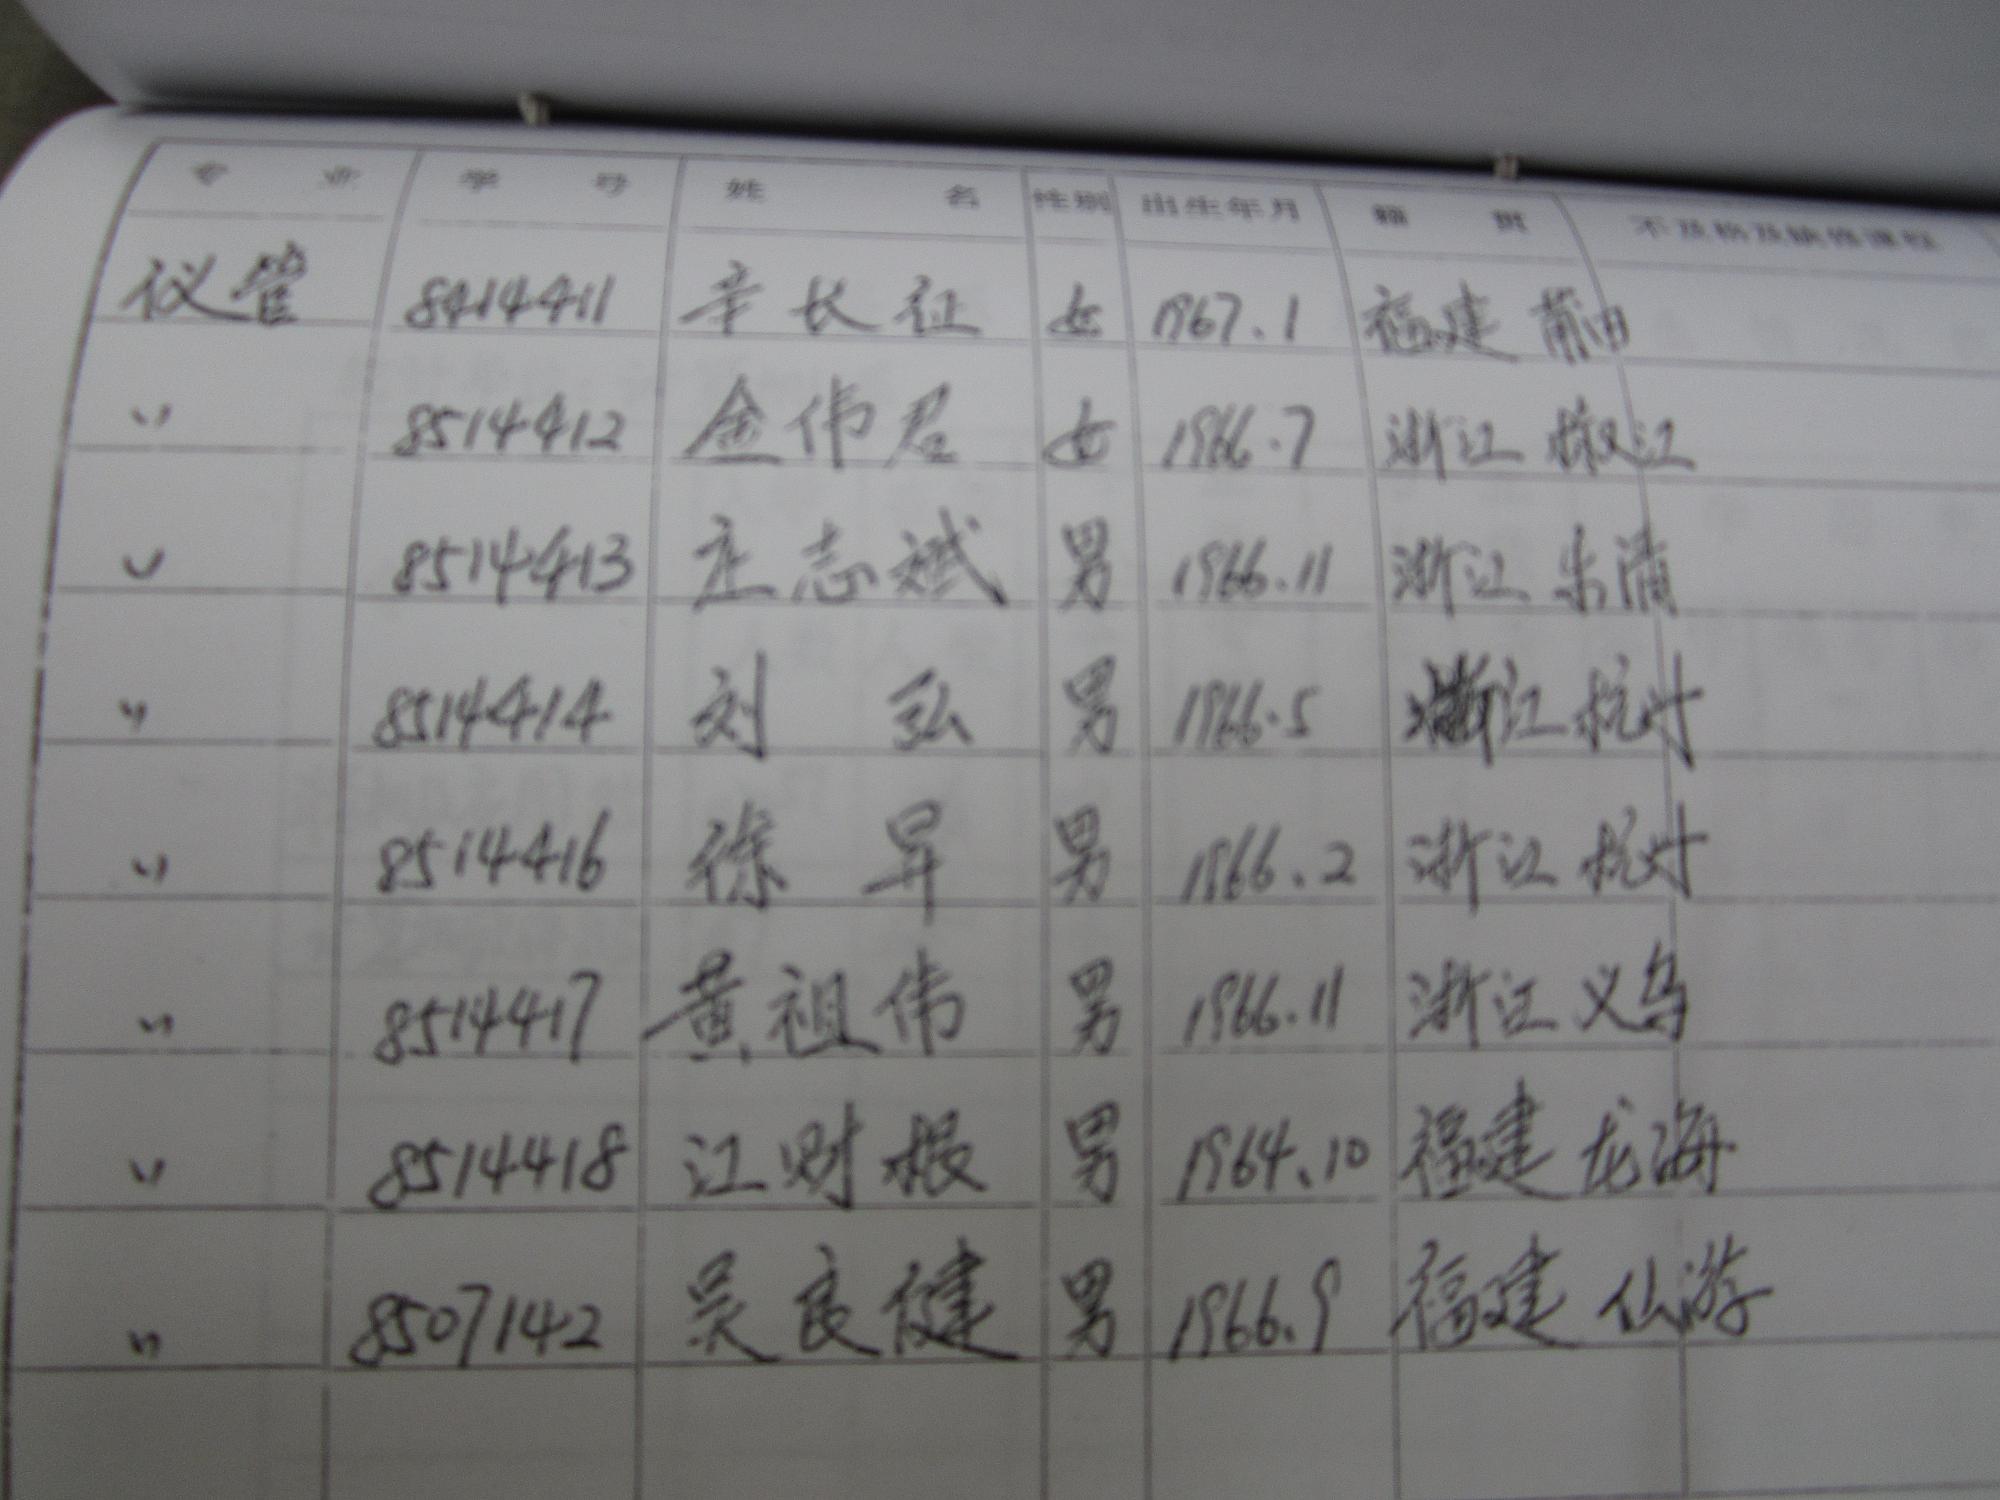 专 业 学 号 姓 名 性别 出生年月 籍 贯 不及格及缺修课程
仪管 8414411 辛长征 女 1967.1 福建 莆田
〃 8514412 金伟君 女 1966.7 浙江 椒江
〃 8514413 庄志斌 男 1966.11 浙江 乐清
〃 8514414 刘 弘 男 1966.5 浙江 杭州
〃 8514416 徐 昇 男 1966.2 浙江 杭州
〃 8514417 黄祖伟 男 1966.11 浙江 义乌
〃 8514418 江财根 男 1964.10 福建 龙海
〃 8507142 吴良健 男 1966.9 福建 仙游